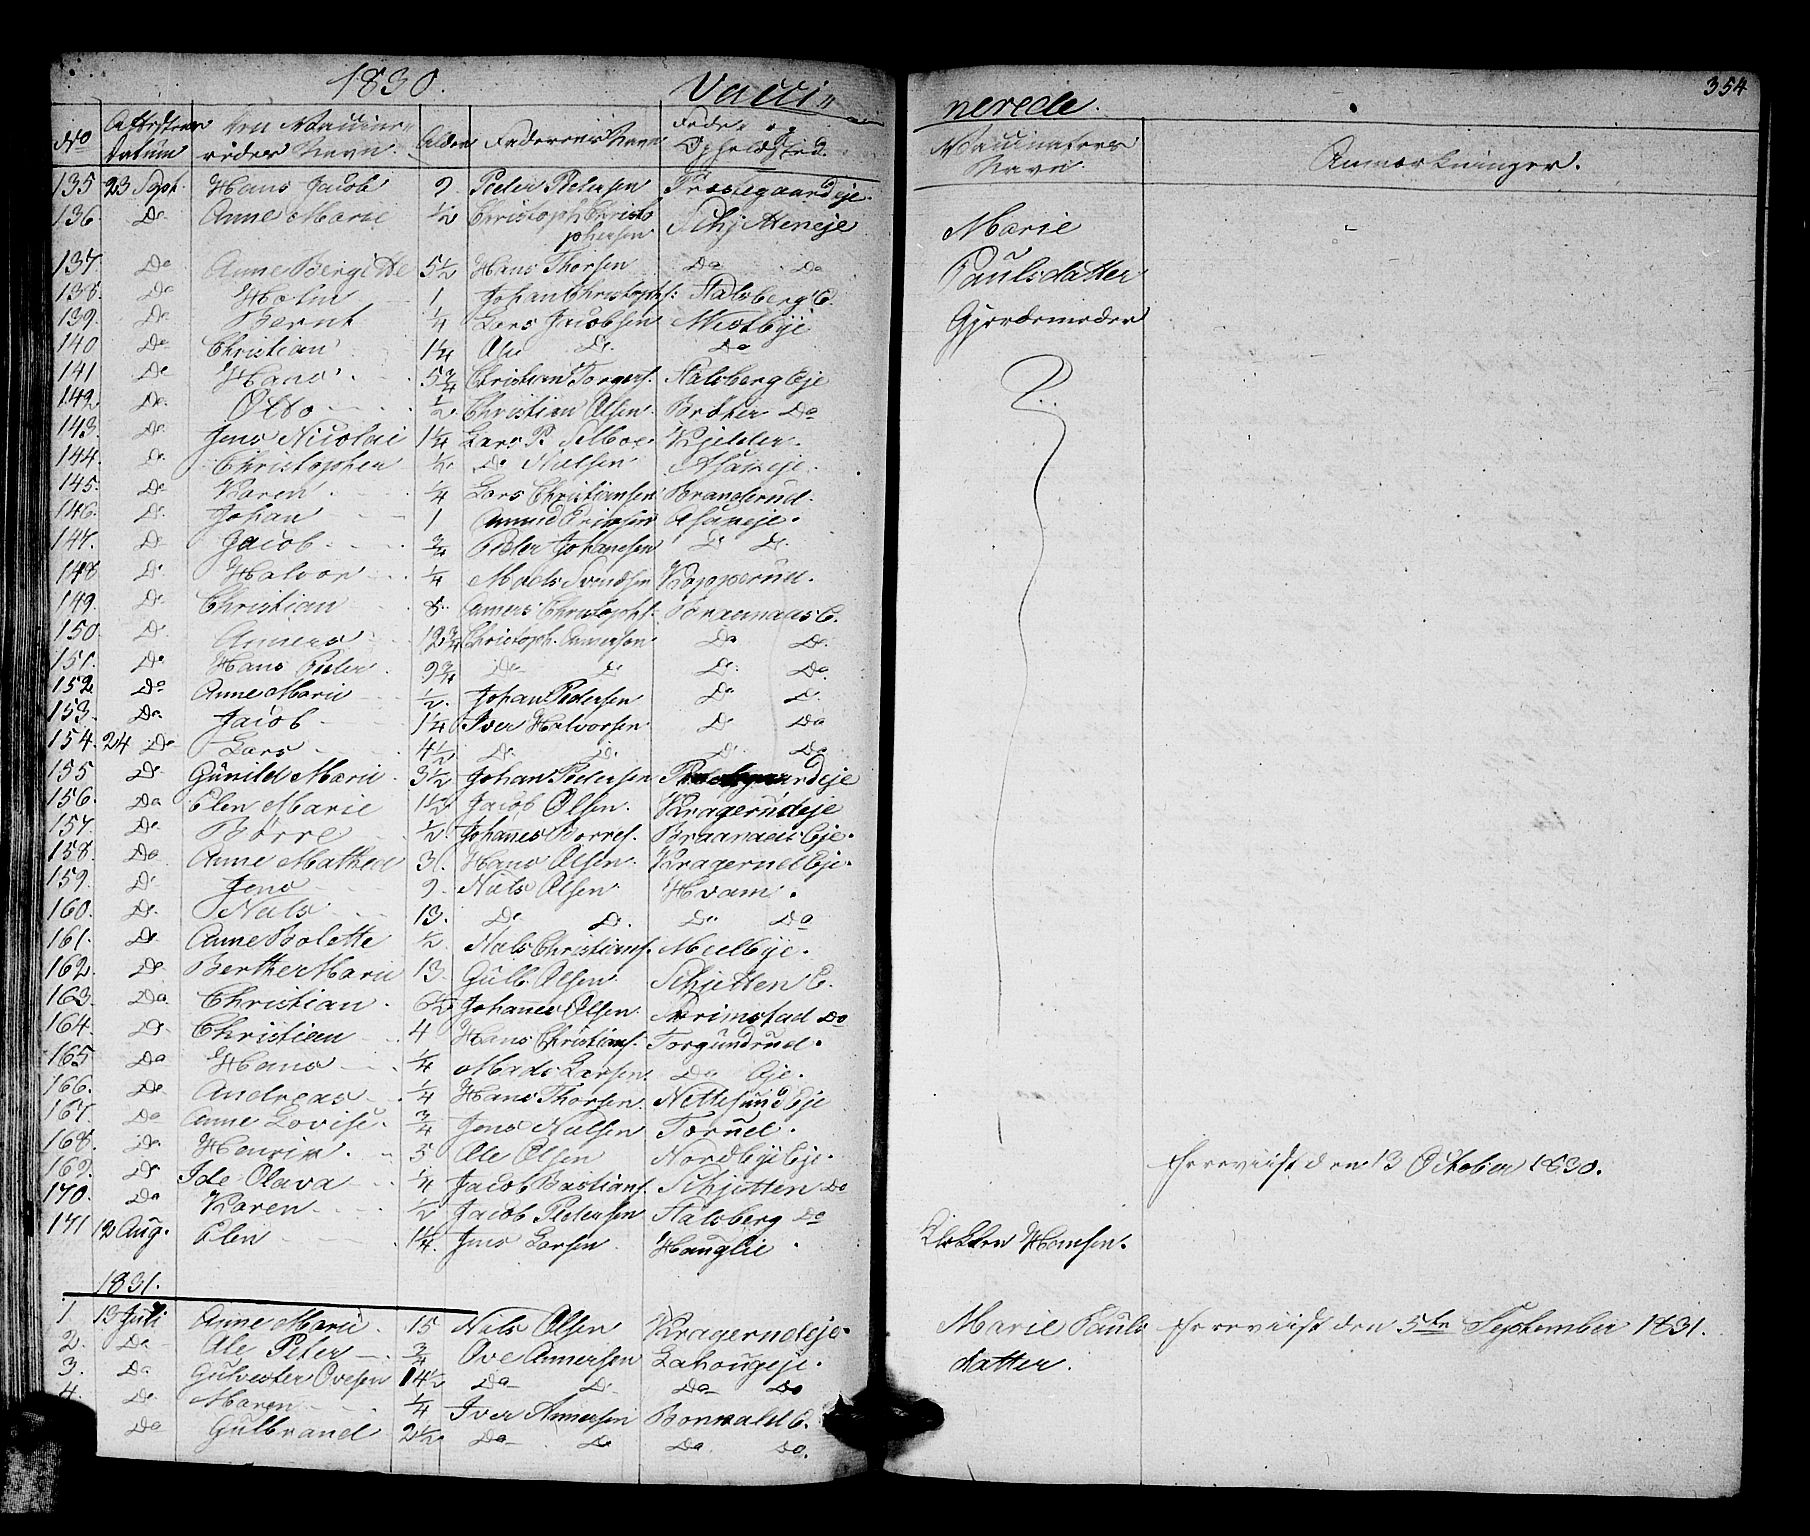 1830. Vacci-
nerede. 354
No Attestens Datum Den Vaccineredes Navn. Alder Faderens Navn Føde- og Opholdsted.
Vaccinateurs Navn. Anmærkninger.
135 23 Sept. Hans Jacob 2 Peder Pedersen Præstegaardeje.
136. Do Anne Marie 1/2 Christoph Christo
phersen Schjetteneje
Marie
137. Do Anne Bergitte 5 1/2 Hans Thorsen Do Do
Paulsdatter
138. Do Holm 1 Johan Christophs: Stalsberg E.
139. Do Bernt 1/4 Lars Jacobsen Nustbye
Gjordemoder
140 Do Christian 1 1/4 Ole Do. Do
141 Do Hans 5 3/4 Christian Torgers. Stalsberg Eje
142 Do. Otto 1/2 Christian Olsen. Bråter Do
143. Do Jens Nicolai 1 1/4 Lars P. Selboe Kjelder.
144. Do Christopher 1/2 Do Nielsen Asaneje.
145. Do Karen 1/4 Lars Christiansen Branderud.
146. Do. Johan 1 Amund Erichsen Asaneje.
147. Do Jacob 3/4 Peder Johanesen Do Do.
148 Do Halvor 1/4 Mads Svendsen Kopperud.
149. Do Christian 8. Anners Christophs. Braanaas E.
150. Do Anners 12 3/4 Christoph. Annersen Do Do.
151. Do Hans Peder 9 3/4 Do Do Do. Do.
152 Do Anne Marie 1/2. Johan Pedersen Do Do.
153. Do. Jacob 1 1/4 Iver Halvorsen Do Do
154. 24 Do Lars 4 1/2 Do Do. Do Do
155 Do. Gunild Marie 3 1/2 Johan Pedersen Præstegaardeje
156. Do Elen Marie 1 1/2 Jacob Olsen. Kragerudeje
157. Do. Børre 1/2 Johannes Borres. Braanaas Eje.
158. Do Anne Mathea 3. Hans Olsen. Kragerud Eje.
159. Do. Jens 2. Niels Olsen Hvam.
160. Do. Niels 13. Do Do. Do Do
161. Do Anne Bolette 1/2. Niels Christians. Mielbye.
162 Do Berthe Marie 13. Gulb. Olsen. Schjetten E.
163. Do. Christian. 6 1/2 Johannes Olsen Strimstad Do
164. Do. Christian 4 Hans Christians. Torgundrud.
165 Do Hans 1/4 Mads Larsen. Do Eje.
166. Do Andreas 1/4 Hans Thorsen. Nettesund Eje
167. Do Anne Lovise. 3/4 Jens Nielsen Torud.
168. Do. Henrik 5 Ole Olsen Nordbye Eje.
169. Do Ide Olava 1/4 Jacob Bastians. Schjetten Do
Foreviist den 13 October 1830.
170. Do Karen 1/2 Jacob Pedersen Stalsberg Do
171 12 Aug. Elen 1 1/4. Jens Larsen. Hauglie.
Klokker Hansen.
1831.
1 13 Juli Anne Marie. 15 Niels Olsen Kragerudeje.
Marie Pauls Foreviist den 5te September 1831.
2. Do Ole Peter 3/4 Ove Annersen Lahougeje.
datter.
3. Do Gulvester Ovesen 14 1/2 Do Do Do Do
4. Do Maren 1/4 Iver Annersen Bonnald E.
Do Gulbrand 2 1/2 Do Do Do Do.